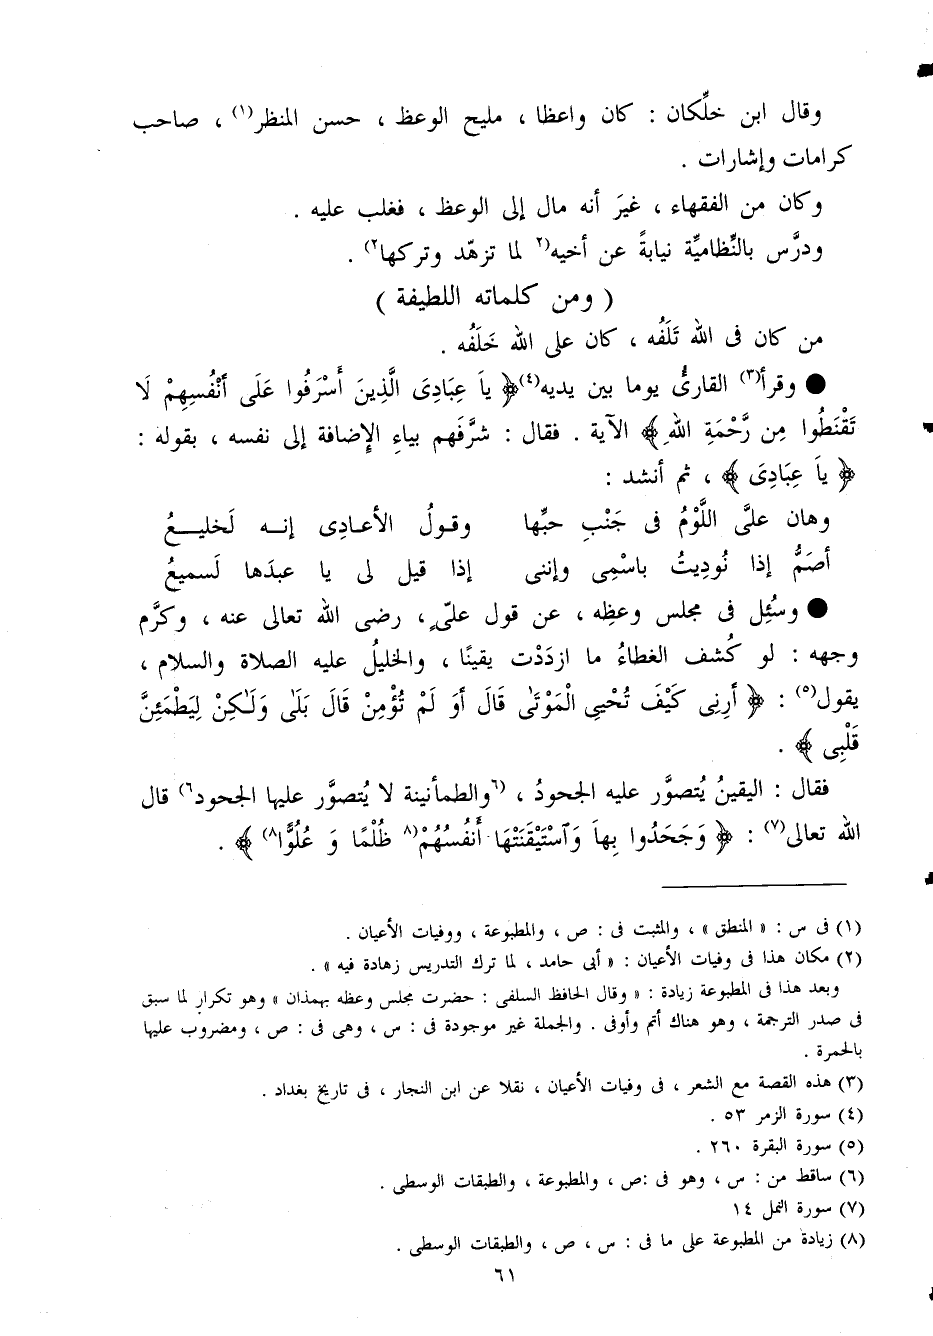 وقال ابن خلِّكان : كان واعظا ، مليح الوعظ ، حسن المنظر(١) ، صاحب
كرامات وإشارات .
وكان من الفقهاء ، غيرَ أنه مال إلى الوعظ ، فغلب عليه .
ودرَّس بالنِّظاميِّة نيابةً عن أخيه(٢ لما تزهّد وتركها٢) .
( ومن كلماته اللطيفة )
من كان فى الله تَلَفُه ، كان على الله خَلَفُه .
● وقرأ(٣) القارئُ يوما بين يديه(٤) ﴿ ياَ عِبَادِىَ الَّذِينَ أَسْرَفُوا عَلَى أَنْفُسِهِمْ لَا
تَقْنَطُوا مِن رَّحْمَةِ اللهِ ﴾ الآية . فقال : شرَّفهم بياءِ الإضافة إلى نفسه ، بقوله :
﴿ ياَ عِبَادِىَ ﴾ ، ثم أنشد :
وهان علىَّ اللَّوْمُ فى جَنْبِ حبِّها وقولُ الأعـادِى إنـه لَخليـــعُ
أصَمُّ إذا نُودِيتُ باسْمِى وإننى إذا قيل لى يا عبدَها لَسميعُ
● وسُئِل فى مجلس وعظِه ، عن قول علىّ ، رضى الله تعالى عنه ، وكرَّم
وجهه : لو كُشف الغطاءُ ما ازدَدْت يقينًا ، والخليلُ عليه الصلاة والسلام ،
يقول(٥) : ﴿ أَرِنِى كَيْفَ تُحْيِى الْمَوْتَىٰ قَالَ أَوَ لَمْ تُؤْمِنْ قَالَ بَلَىٰ وَلَـٰكِنْ لِيَطْمَئِنَّ
قَلْبِى ﴾ .
فقال : اليقينُ يُتصوَّر عليه الجحودُ ، (٦والطمأنينة لا يُتصوَّر عليها الجحود٦) قال
الله تعالى(٧) : ﴿ وَجَحَدُوا بِهاَ وَٱسْتَيْقَنَتْهَا أَنفُسُهُمْ(٨ ظُلْمًا وَ عُلُوًّا٨) ﴾ .
(١) فى س : « المنطق » ، والمثبت فى : ص ، والمطبوعة ، ووفيات الأعيان .
(٢) مكان هذا فى وفيات الأعيان : « أبى حامد ، لما ترك التدريس زهادة فيه » .
وبعد هذا فى المطبوعة زيادة : « وقال الحافظ السلفى : حضرت مجلس وعظه بهمذان » وهو تكرار لما سبق
فى صدر الترجمة ، وهو هناك أتم وأوفى . والجملة غير موجودة فى : س ، وهى فى : ص ، ومضروب عليها
بالحمرة .
(٣) هذه القصة مع الشعر ، فى وفيات الأعيان ، نقلا عن ابن النجار ، فى تاريخ بغداد .
(٤) سورة الزمر ٥٣ .
(٥) سورة البقرة ٢٦٠ .
(٦) ساقط من : س ، وهو فى :ص ، والمطبوعة ، والطبقات الوسطى .
(٧) سورة النمل ١٤
(٨) زيادة من المطبوعة على ما فى : س ، ص ، والطبقات الوسطى .
٦١